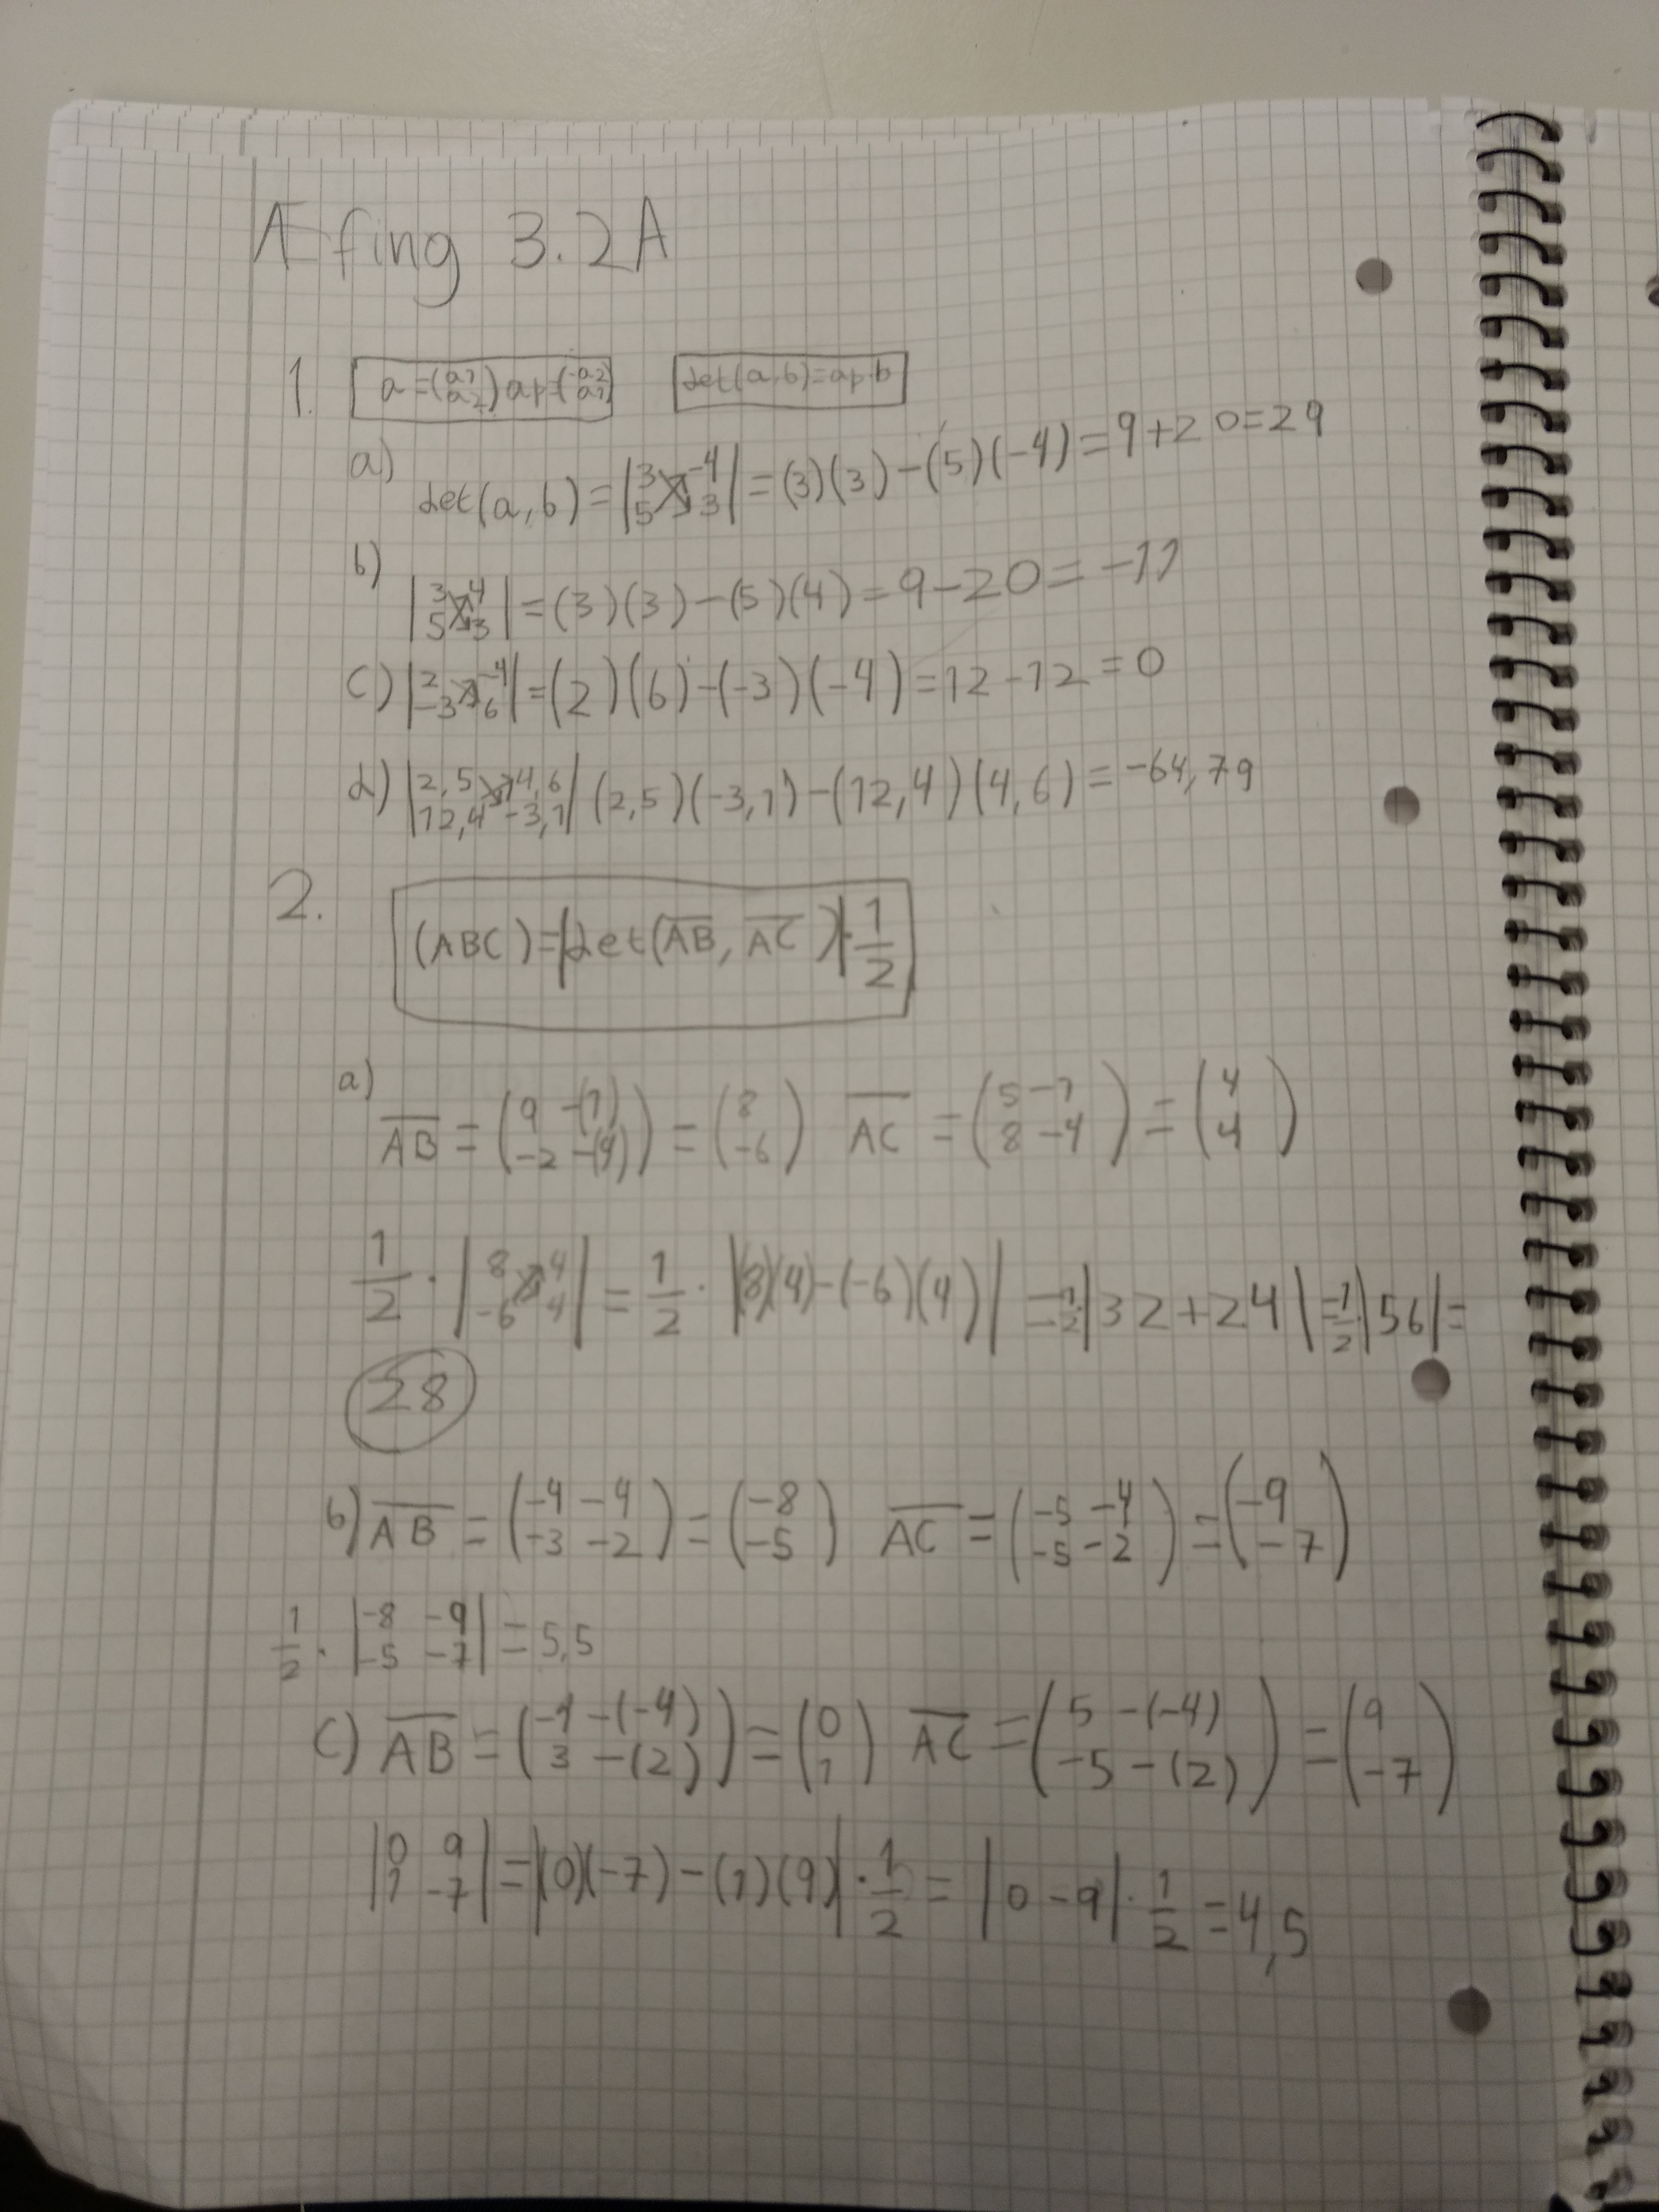 Æfing 3.2A
1. a = (a1 a2) ap = (-a2 a1) det(a,b) = ap·b
a) det(a,b) = |3 -4 5 3| = (3)(3) - (5)(-4) = 9+20 = 29
b) |3 4 5 3| = (3)(3) - (5)(4) = 9-20 = -11
c) |2 -4 -3 6| = (2)(6) - (-3)(-4) = 12-12 = 0
d) |2,5 4,6 12,4 -3,1| (2,5)(-3,1) - (12,4)(4,6) = -64,79
2. (ABC) = |det(AB, AC)|·1/2
a) AB = (9 -(1) -2 -(4)) = (8 -6) AC = (5-1 8-4) = (4 4)
1/2 · |8 4 -6 4| = 1/2 · |(8)(4) - (-6)(4)| = 1/2 |32+24| = 1/2 |56| =
28
b) AB = (-4-4 -3-2) = (-8 -5) AC = (-5-4 -5-2) = (-9 -7)
1/2 · |-8 -9 -5 -7| = 5,5
c) AB = (-4 -(-4) 3 -(2)) = (0 1) AC = (5 -(-4) -5 -(2)) = (9 -7)
|0 9 1 -7| = |(0)(-7) - (1)(9)| · 1/2 = |0-9| · 1/2 = 4,5